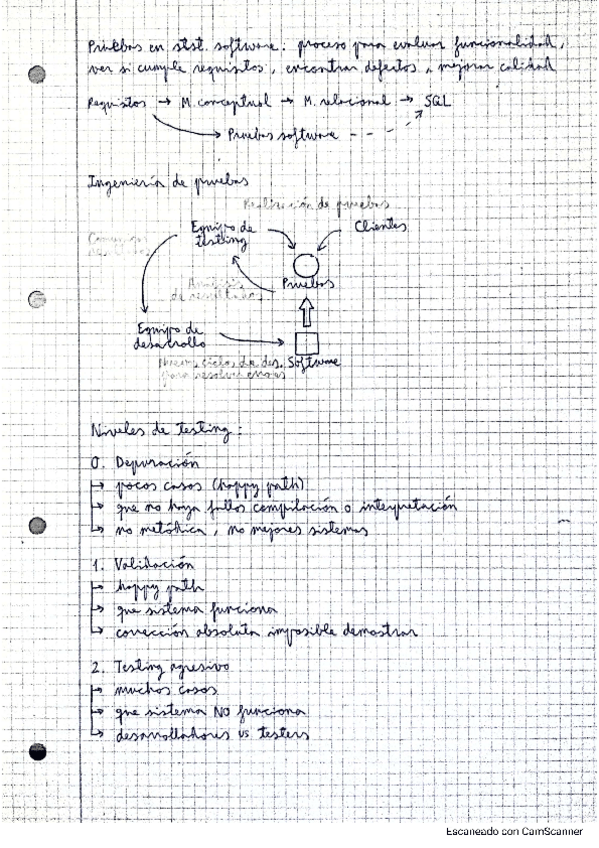 Pruebas en sist. software: proceso para evaluar funcionalidad,
ver si cumple requisitos, encontrar defectos, mejorar calidad
Requisitos → M. conceptual → M. relacional → SQL
Pruebas software
Ingeniería de pruebas
Realización de pruebas
Equipo de
testing
Clientes
Análisis
de resultados
Pruebas
Equipo de
desarrollo
Software
Nuevo ciclo de des.
para resolver errores
Niveles de testing:
0. Depuración
→ pocos casos (happy path)
→ que no haya fallos compilación o interpretación
→ no metódica, no mejores sistemas
1. Validación
→ happy path
→ que sistema funciona
→ corrección absoluta imposible demostrar
2. Testing agresivo
→ muchos casos
→ que sistema NO funciona
→ desarrolladores vs testers
Escaneado con CamScanner